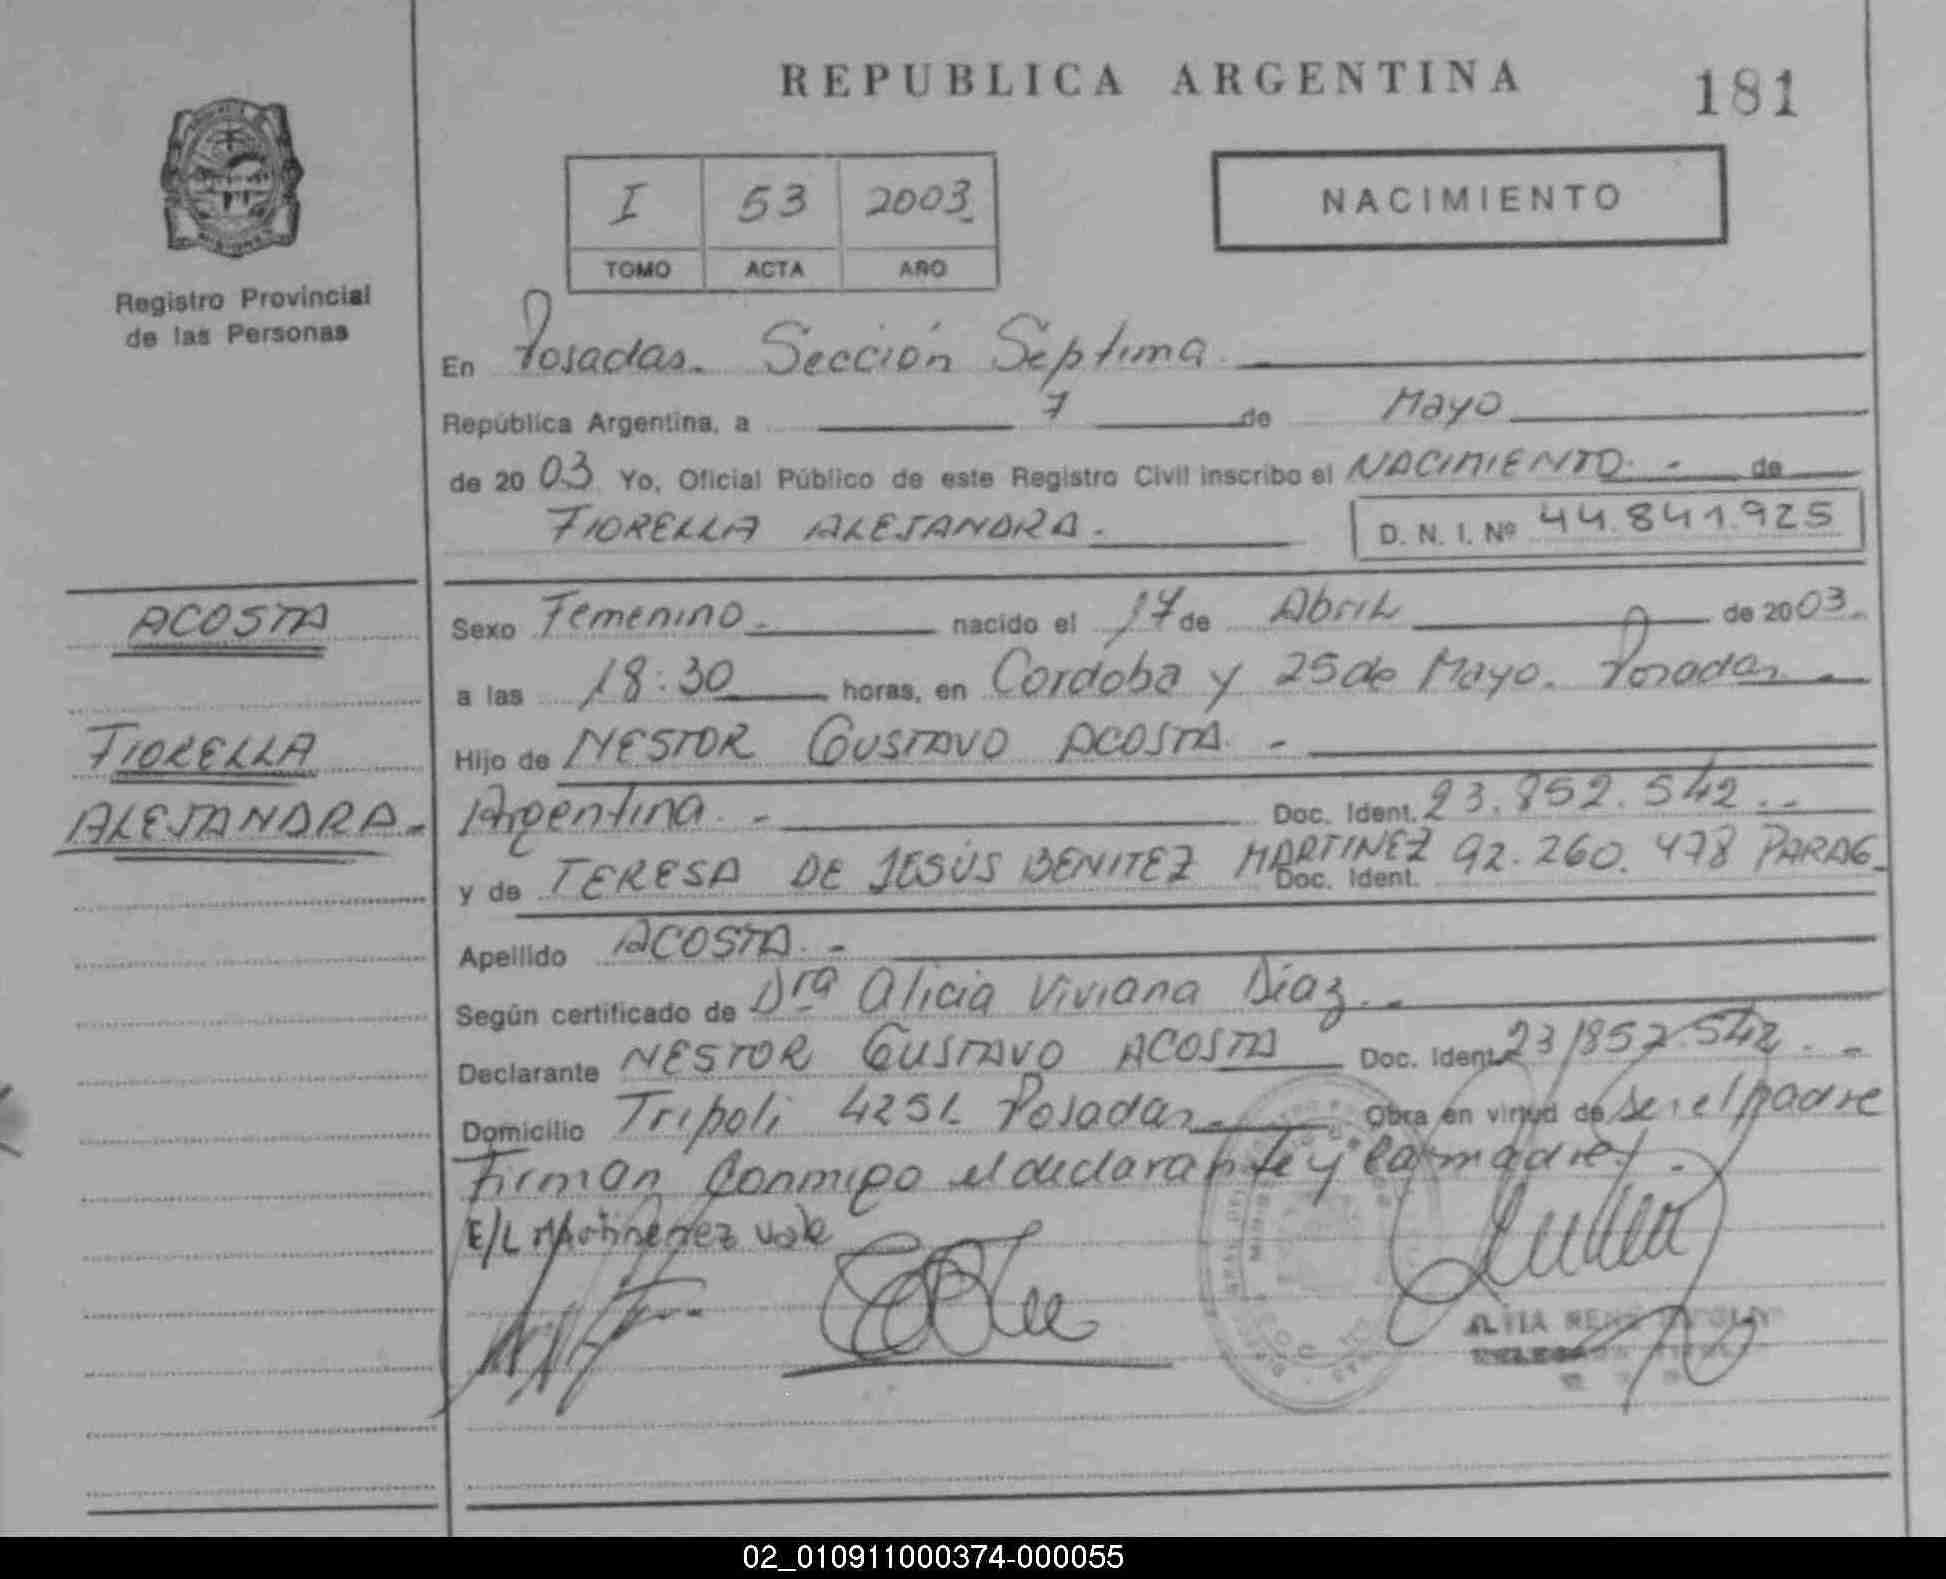 REPUBLICA ARGENTINA
181
I 53 2003
TOMO ACTA AÑO
NACIMIENTO
Registro Provincial
de las Personas
En Posadas. Sección Septima
República Argentina, a 7 de Mayo
de 2003 Yo, Oficial Público de este Registro Civil inscribo el NACIMIENTO. - de
FIORELLA ALEJANDRA.
D. N. I. Nº 44.841.925
ACOSTA
FIORELLA
ALEJANDRA.
Sexo Femenino. nacido el 17 de Abril de 2003.
a las 18:30 horas, en Cordoba y 25 de Mayo. Posadas
Hijo de NESTOR GUSTAVO ACOSTA. -
Argentina. - Doc. Ident. 23.852.542. -
y de TERESA DE JESÚS BENITEZ MARTINEZ Doc. Ident. 92.260.478 PARAG.
Apellido ACOSTA. -
Según certificado de Dra Alicia Viviana Díaz. -
Declarante NESTOR GUSTAVO ACOSTA Doc. Ident. 23.852.542. -
Domicilio Tripoli 4251 Posadas. Obra en virtud de ser el padre
Firman conmigo el declarante y la madre.
E/L vale
02_010911000374-000055